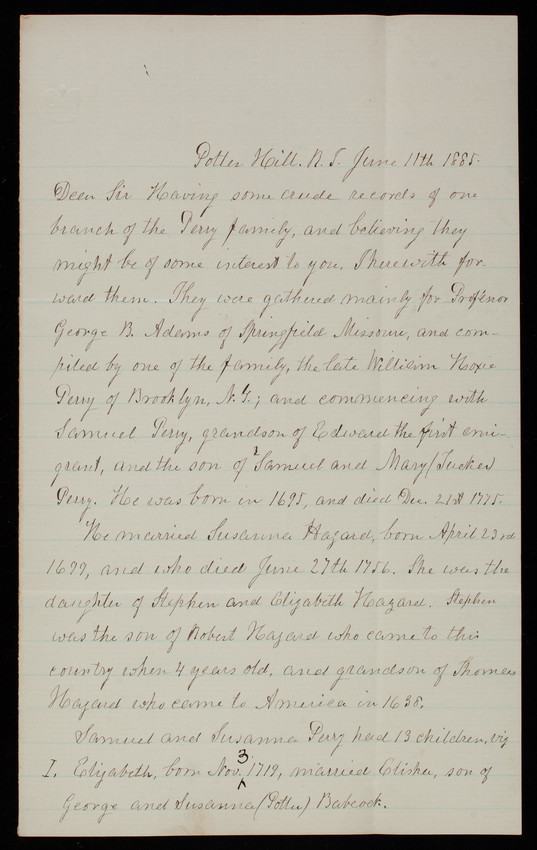 Potter Hill. R. I. June 11th 1885.
Dear Sir Having some crude records of one
branch of the Perry family, and believing they
might be of some interest to you, I herewith for-
ward them. They were gathered mainly for Professor
George B. Adams of Springfield Missouri, and com-
piled by one of the family, the late William Hoxie
Perry of Brooklyn, N.Y.; and commencing with
Samuel Perry, grandson of Edward the first emi-
grant, and the son of Samuel and Mary (Tucker)
Perry. He was born in 1695, and died Dec. 21st 1775.
He married Susanna Hazard, born April 23rd
1699, and who died June 27th 1756. She was the
daughter of Stephen and Elizabeth Hazard. Stephen
was the son of Robert Hazard who came to this
country when 4 years old, and grandson of Thomas
Hazard who came to America in 1638.
Samuel and Susanna Perry had 13 children, viz
I. Elizabeth, born Nov. 3 1719, married Elisha, son of
George and Susanna (Potter) Babcock.